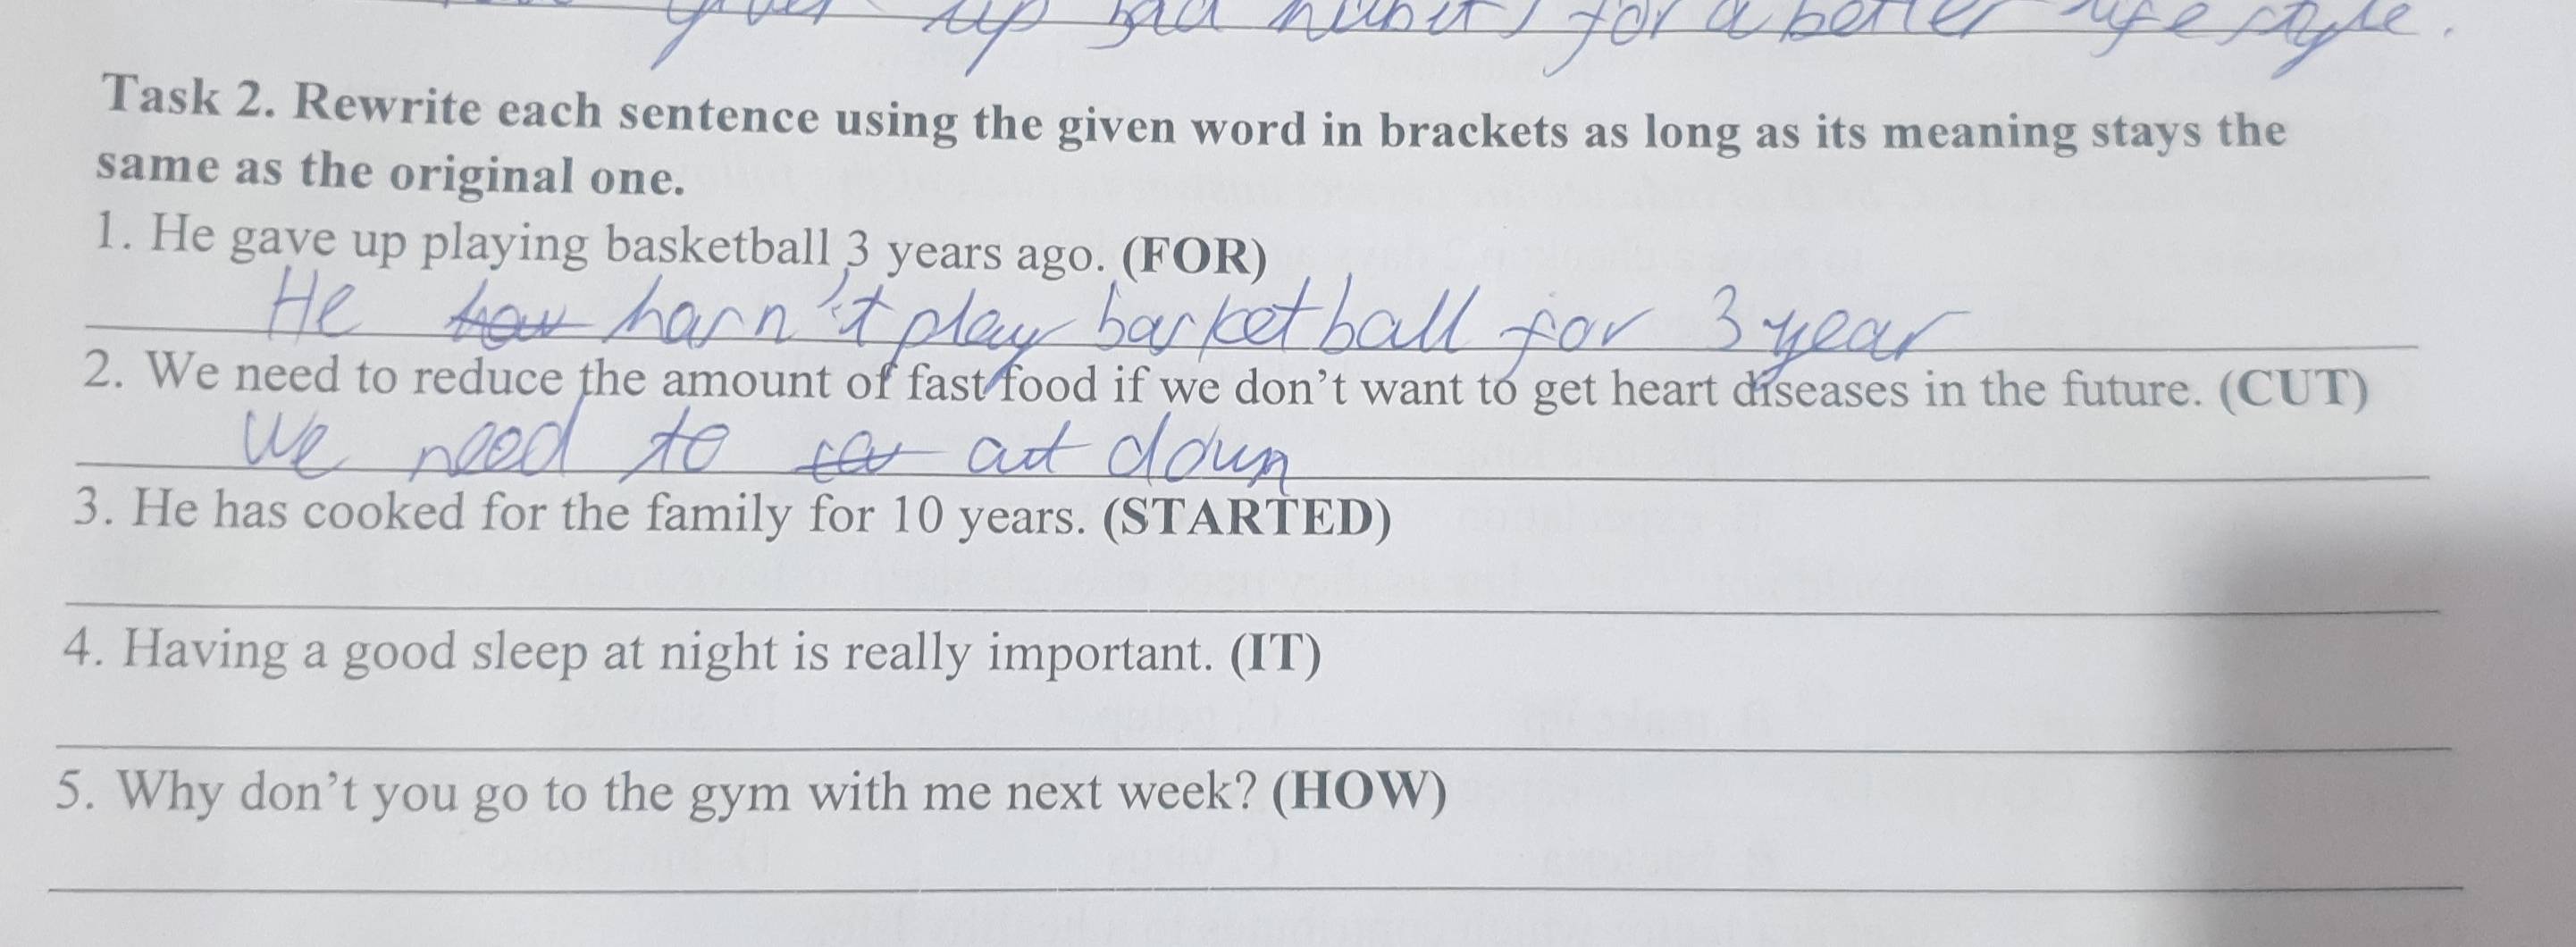 up bad habits for a better life style.
Task 2. Rewrite each sentence using the given word in brackets as long as its meaning stays the
same as the original one.
1. He gave up playing basketball 3 years ago. (FOR)
He hasn't play basketball for 3 year
2. We need to reduce the amount of fast food if we don't want to get heart diseases in the future. (CUT)
We need to cut down
3. He has cooked for the family for 10 years. (STARTED)
4. Having a good sleep at night is really important. (IT)
5. Why don't you go to the gym with me next week? (HOW)